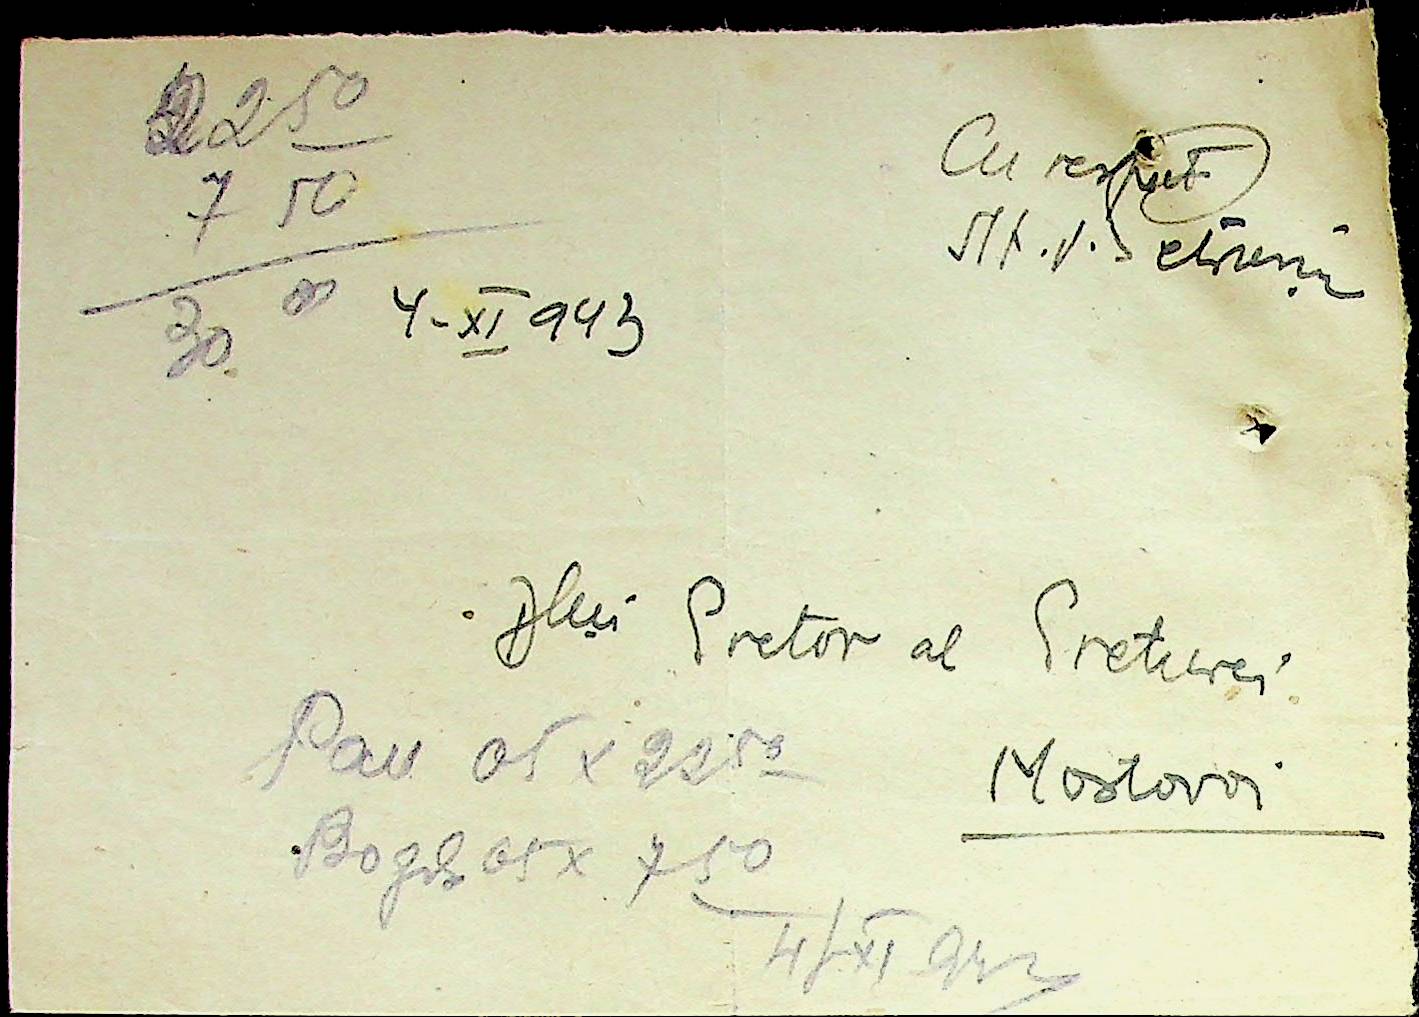 22 50
7 50
30 00
4-XI 943
Cu respect
Dlui Pretor al Preturei
Mostovoi
Pau 05 x 22 50
05 x 7 50
4/XI 943